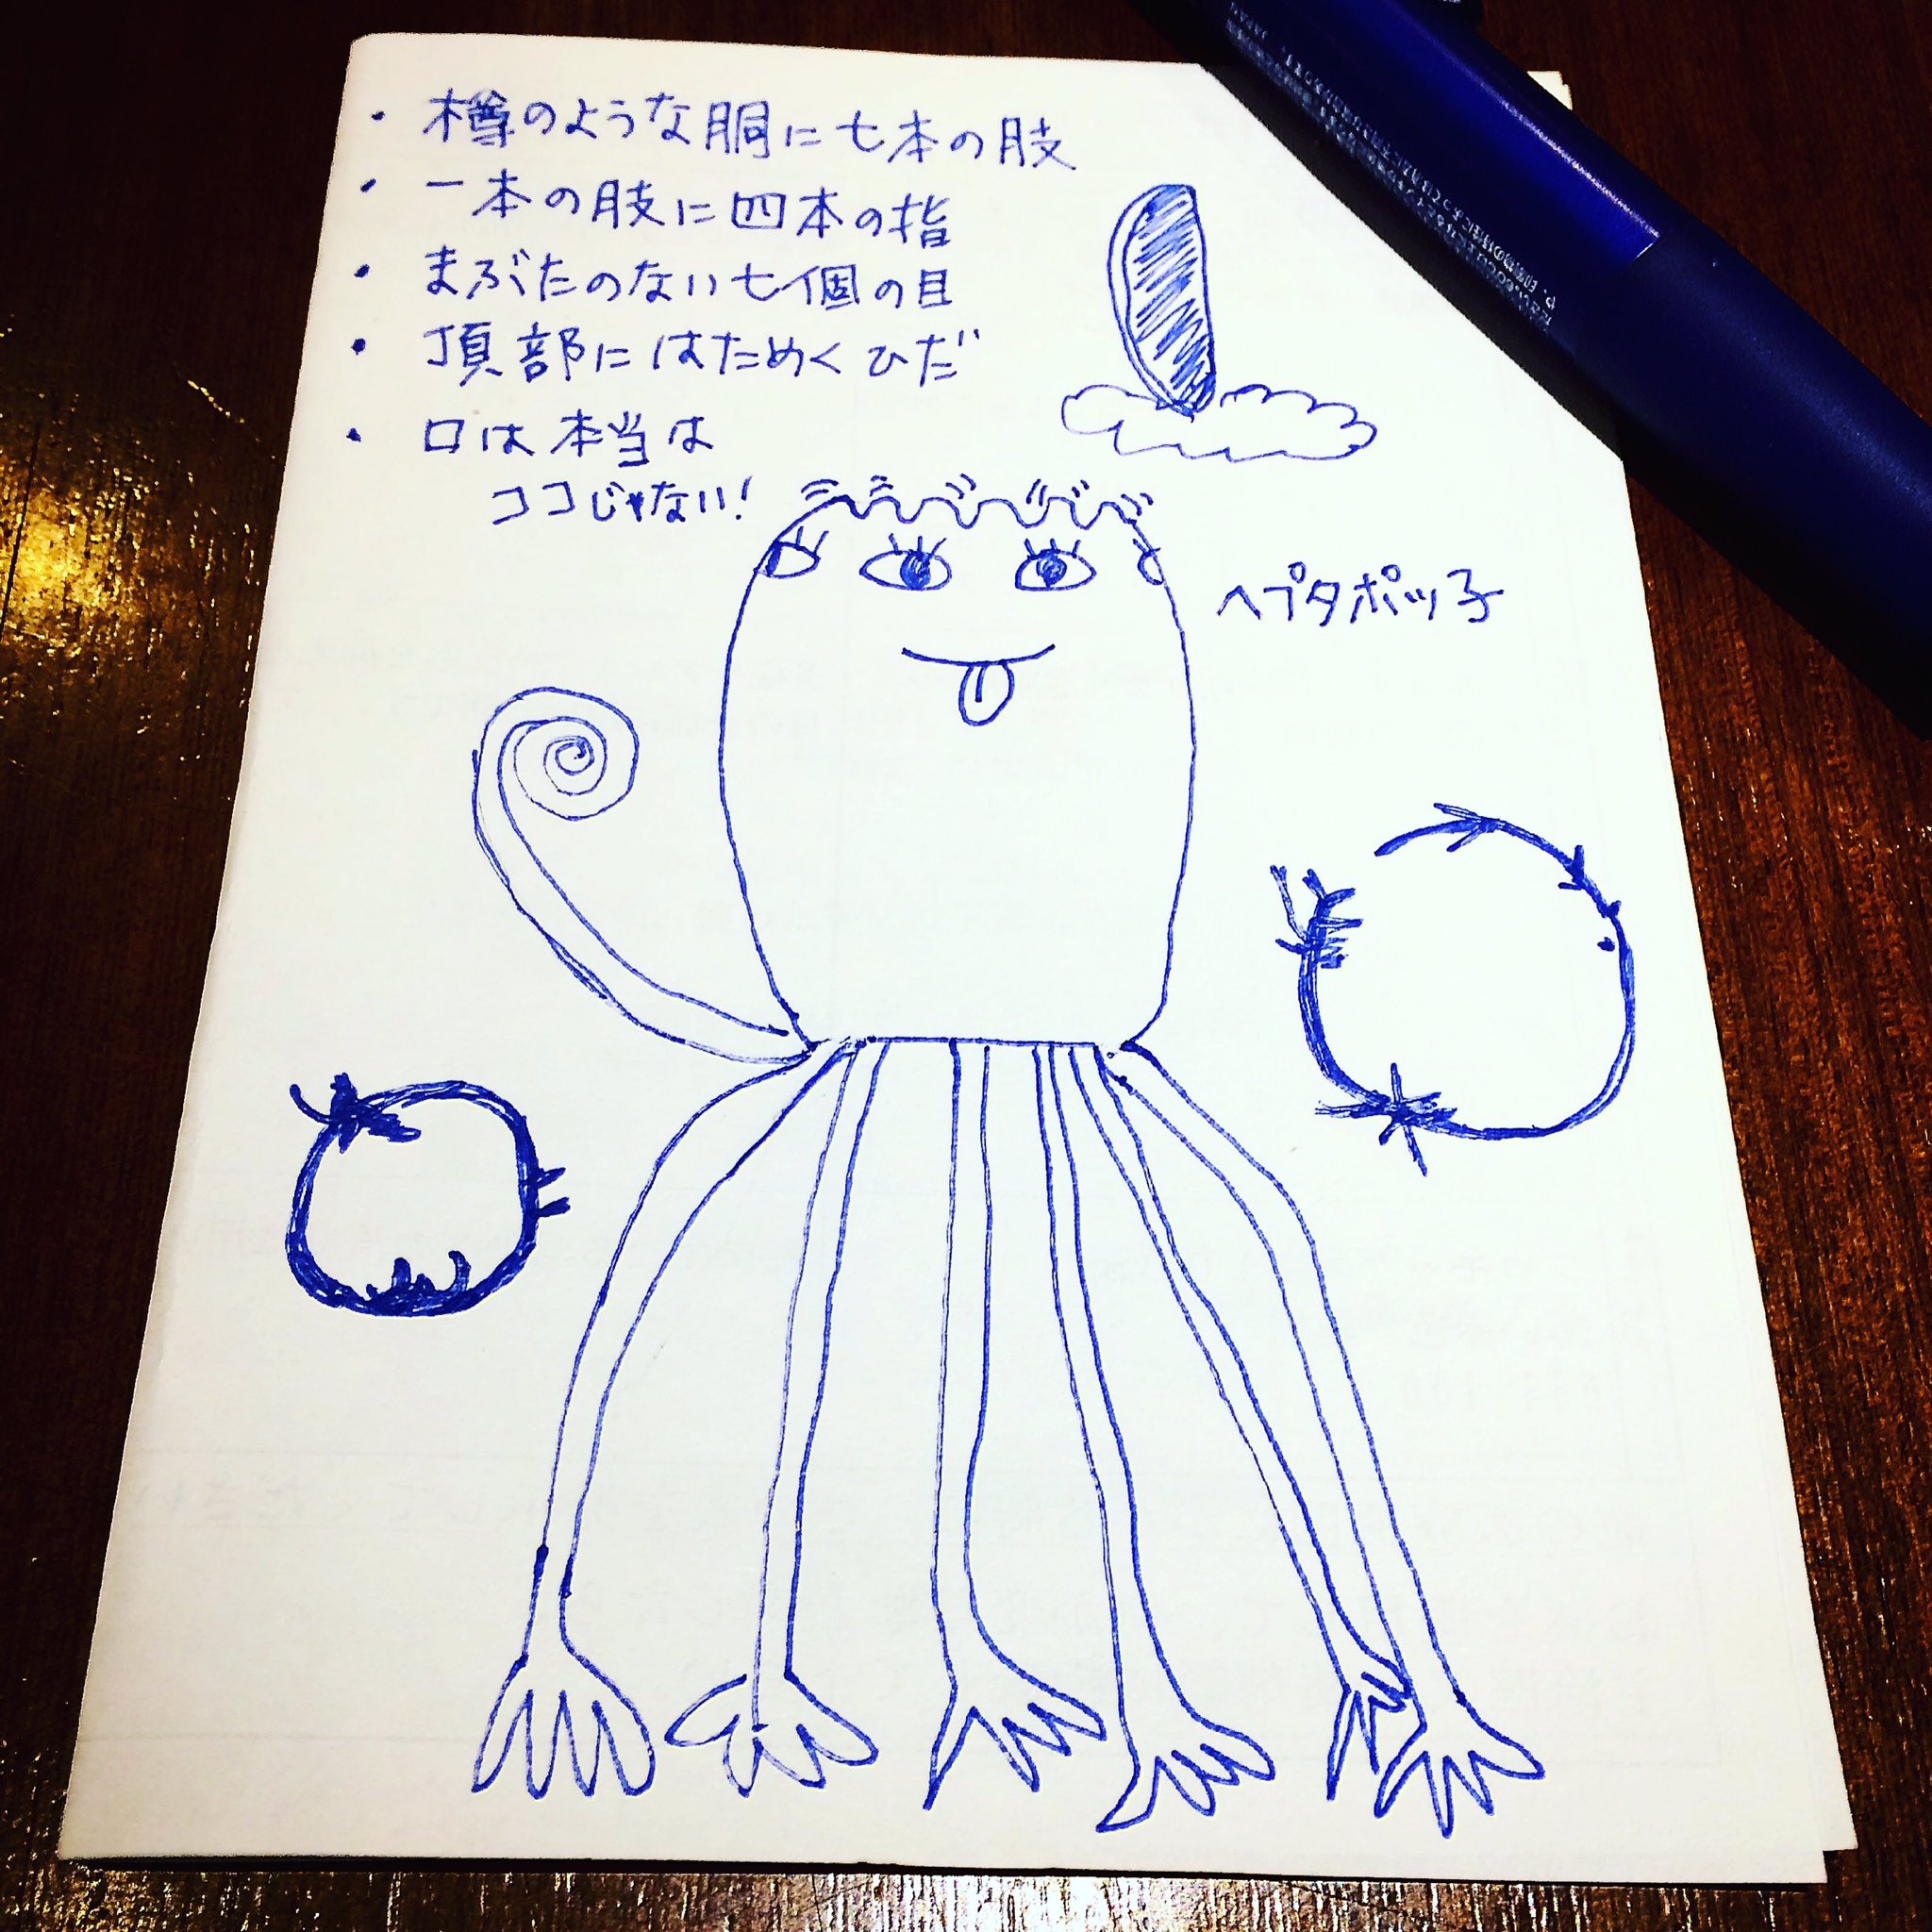 ・樽のような胴に七本の肢
・一本の肢に四本の指
・まぶたのない七個の目
・頂部にはためくひだ
・口は本当は
ココじゃない!
ヘプタポッ子